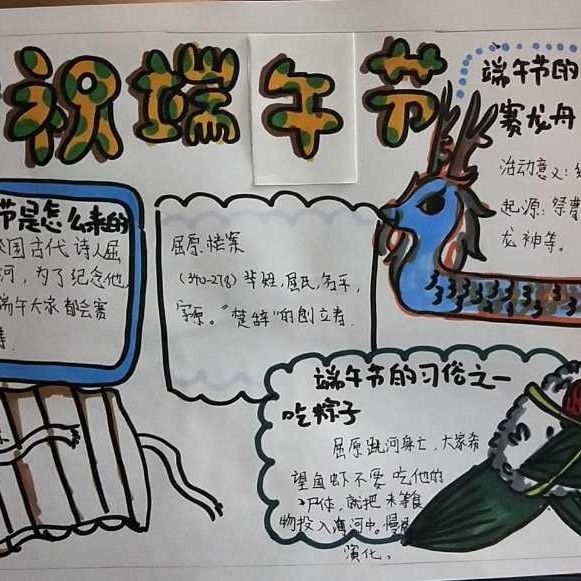 祝端午节
端午节的
赛龙舟
起源：祭
龙神等。
节是怎么来的
国古代诗人屈
河，为了纪念他，
端午大家都会赛
屈原档案
(340-278) 芈姓，屈氏，名平，
字原。"楚辞"的创立者
端午节的习俗之一
吃粽子
屈原跳河身亡，大家希
望鱼虾不要吃他的
尸体，就把米等食
物投入海河中。慢慢
演化。